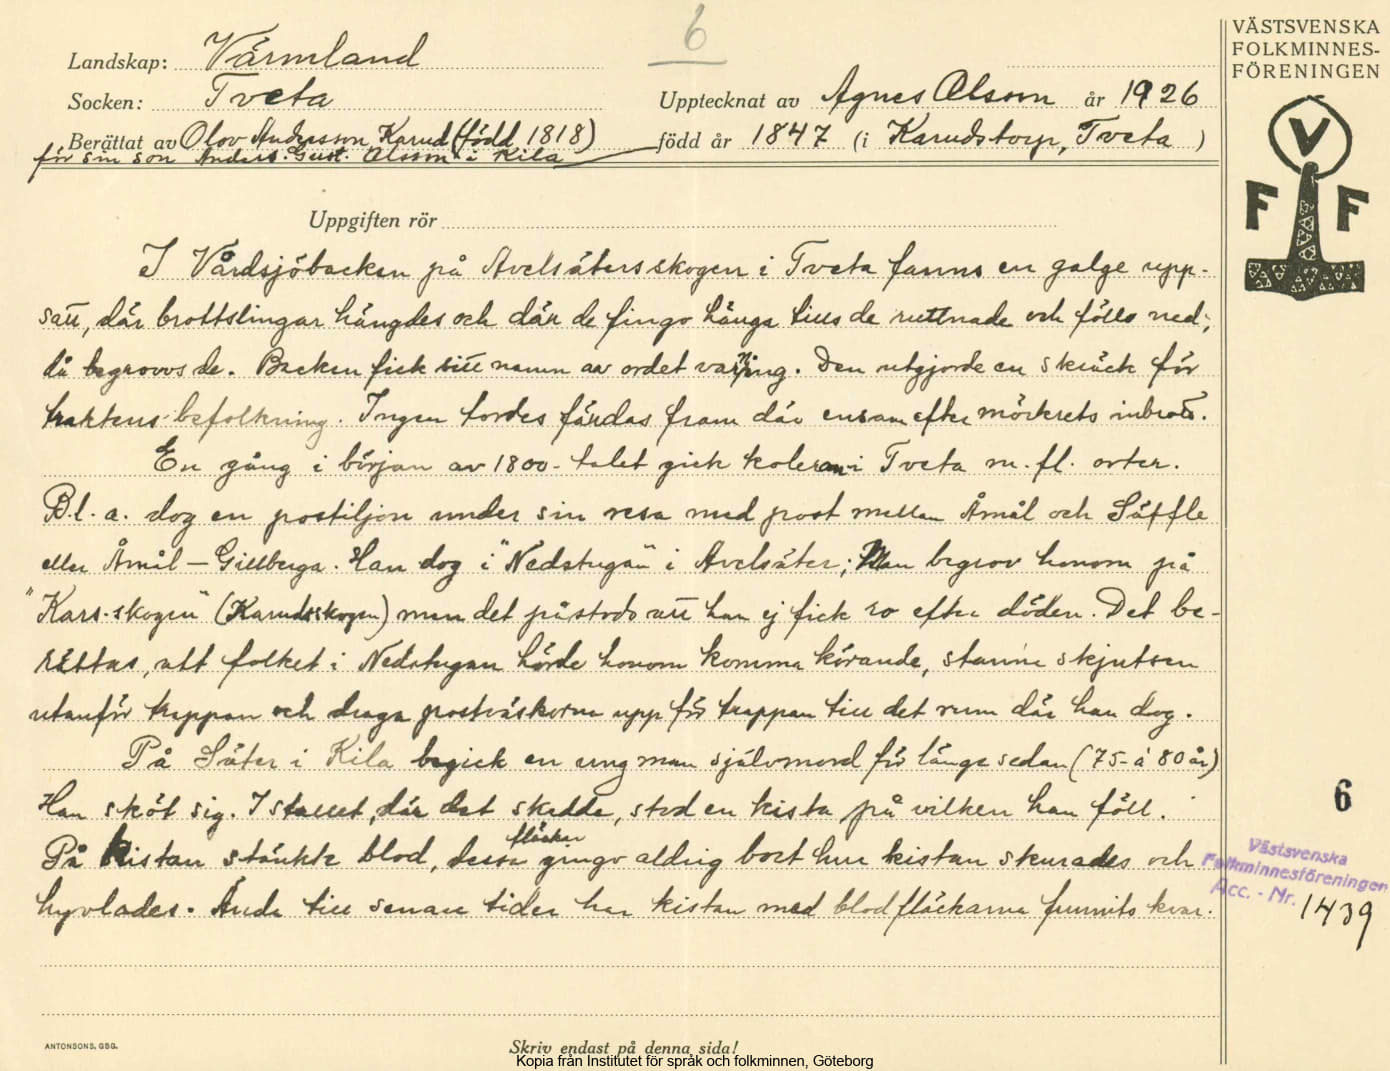 6
VÄSTSVENSKA
FOLKMINNES-
FÖRENINGEN
V
F F
Landskap: Värmland
Socken: Tveta
Upptecknat av Agnes Olsson år 1926
Berättat av Olov Andersson, Karud (född 1818)
för sin son Anders Gust. Olsson i Kila
född år 1847 (i Karudstorp, Tveta )
Uppgiften rör
I Vårdsjöbacken på Avelsätersskogen i Tveta fanns en galge upp-
satt, där brottslingar hängdes och där de fingo hänga tills de ruttnade och föllo ned;
då begrovos de. Backen fick sitt namn av ordet varning. Den utgjorde en skräck för
traktens befolkning. Ingen tordes färdas fram där ensam efter mörkrets inbrott.
En gång i början av 1800-talet gick koleran i Tveta m. fl. orter.
Bl. a. dog en postiljon under sin resa med post mellan Åmål och Säffle
eller Åmål – Gillberga. Han dog i "Nedstugan" i Avelsäter; Man begrov honom på
"Kars-skogen" (Karudsskogen) men det påstods att han ej fick ro efter döden. Det be-
rättas, att folket i Nedstugan hörde honom komma körande, stanna skjutsen
utanför trappan och draga postväskorna upp för trappan till det rum där han dog.
På Säter i Kila begick en ung man självmord för länge sedan (75- à 80 år)
Han sköt sig. I stallet, där det skedde, stod en kista på vilken han föll.
På kistan stänkte blod, dessa fläckar gingo aldrig bort hur kistan skurades och
hyvlades. Ända till senare tider har kistan med blodfläckarna funnits kvar.
6
Västsvenska
Folkminnesföreningen
Acc. - Nr. 1439
ANTONSONS, GBG.
Skriv endast på denna sida!
Kopia från Institutet för språk och folkminnen, Göteborg